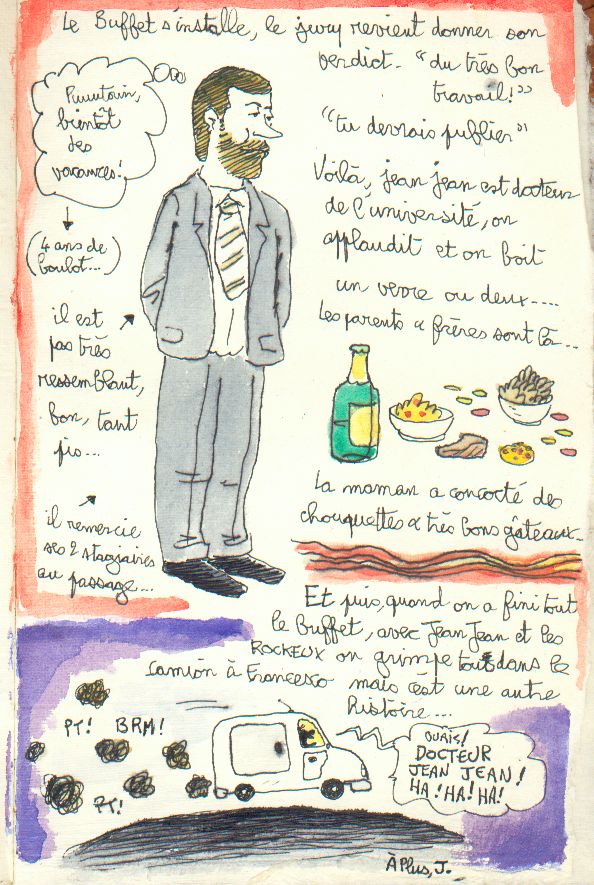 Le Buffet s'installe, le jury revient donner son
verdict.. "du très bon
travail!"
"tu devrais publier"
Voilà, jean jean est docteur
de l'université, on
applaudit et on boit
un verre ou deux....
Les parents & frères sont là...
Puuutain,
bientôt
des
vacances!
(4 ans de
boulot...)
il est
pas très
ressemblant,
bon, tant
pis...
il remercie
ses 2 stagiaires
au passage...
La maman a concocté des
chouquettes & très bons gâteaux..
Et puis, quand on a fini tout
le Buffet, avec Jean Jean et les
ROCKEUX on grimpe tous dans le
camion à Francesco mais c'est une autre
histoire...
PT! BRM!
PT!
OUAIS!
DOCTEUR
JEAN JEAN!
HA! HA! HA!
À Plus, J.